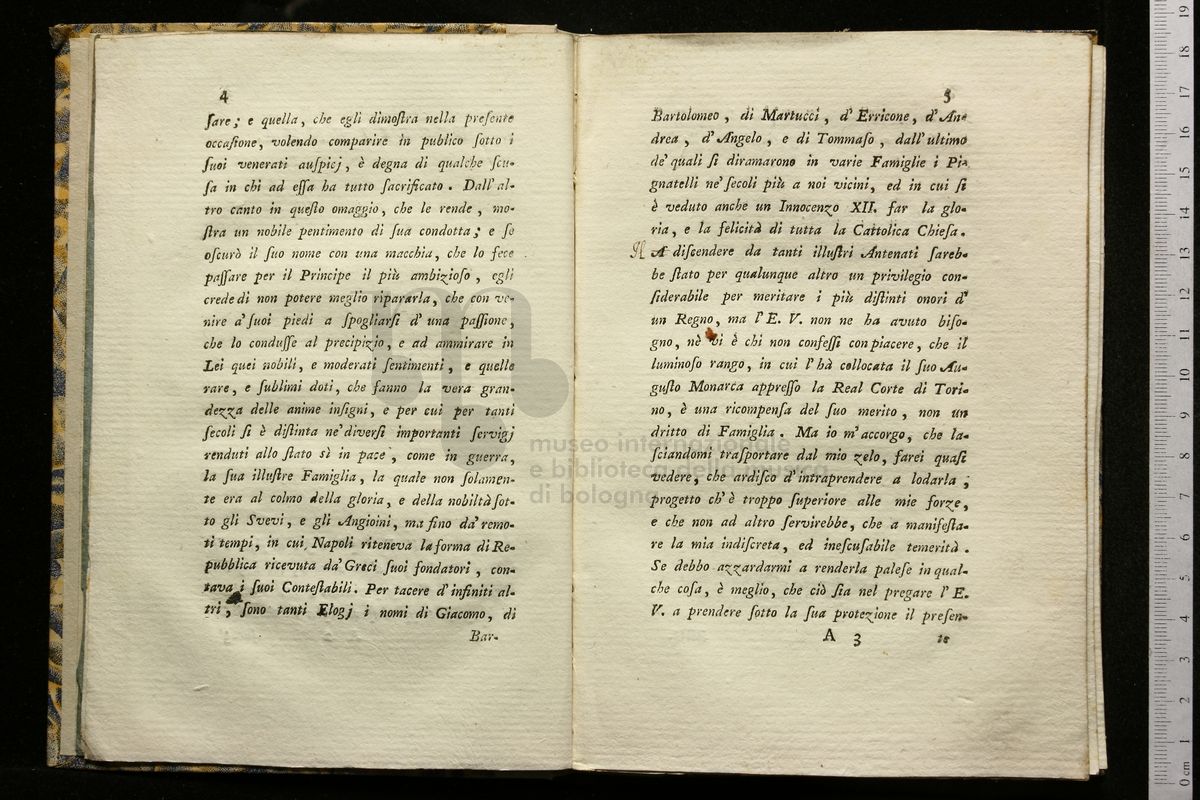 4
ſare; e quella, che egli dimoſtra nella preſente
occaſione, volendo comparire in publico ſotto i
ſuoi venerati auſpicj, è degna di qualche ſcu-
ſa in chi ad eſſa ha tutto ſacrificato. Dall' al-
tro canto in queſto omaggio, che le rende, mo-
ſtra un nobile pentimento di ſua condotta; e ſe
oſcurò il ſuo nome con una macchia, che lo fece
paſſare per il Principe il più ambizioſo, egli
crede di non potere meglio ripararla, che con ve-
nire a' ſuoi piedi a ſpogliarſi d' una paſſione,
che lo conduſſe al precipizio, e ad ammirare in
Lei quei nobili, e moderati ſentimenti, e quelle
rare, e ſublimi doti, che fanno la vera gran-
dezza delle anime inſigni, e per cui per tanti
ſecoli ſi è diſtinta ne' diverſi importanti ſervigj
renduti allo ſtato sì in pace, come in guerra,
la ſua illuſtre Famiglia, la quale non ſolamen-
te era al colmo della gloria, e della nobiltà ſot-
to gli Svevi, e gli Angioini, ma fino da' remo-
ti tempi, in cui Napoli riteneva la forma di Re-
pubblica ricevuta da' Greci ſuoi fondatori, con-
tava i ſuoi Conteſtabili. Per tacere d' infiniti al-
tri, ſono tanti Elogj i nomi di Giacomo, di
Bar-
5
Bartolomeo, di Martucci, d' Erricone, d' An-
drea, d' Angelo, e di Tommaſo, dall' ultimo
de' quali ſi diramarono in varie Famiglie i Pi-
gnatelli ne' ſecoli più a noi vicini, ed in cui ſi
è veduto anche un Innocenzo XII. far la glo-
ria, e la felicità di tutta la Cattolica Chieſa.
A diſcendere da tanti illuſtri Antenati ſareb-
be ſtato per qualunque altro un privilegio con-
ſiderabile per meritare i più diſtinti onori d'
un Regno, ma l' E. V. non ne ha avuto biſo-
gno, nè vi è chi non confeſſi con piacere, che il
luminoſo rango, in cui l' hà collocata il ſuo Au-
guſto Monarca appreſſo la Real Corte di Tori-
no, è una ricompenſa del ſuo merito, non un
dritto di Famiglia. Ma io m' accorgo, che la-
ſciandomi traſportare dal mio zelo, farei quaſi
vedere, che ardiſco d' intraprendere a lodarla;
progetto ch' è troppo ſuperiore alle mie forze,
e che non ad altro ſervirebbe, che a manifeſta-
re la mia indiſcreta, ed ineſcuſabile temerità.
Se debbo azzardarmi a renderla paleſe in qual-
che coſa, è meglio, che ciò ſia nel pregare l' E.
V. a prendere ſotto la ſua protezione il preſen-
A 3
te
museo internazionale
e biblioteca della musica
di bologna
0 cm 1 2 3 4 5 6 7 8 9 10 11 12 13 14 15 16 17 18 19